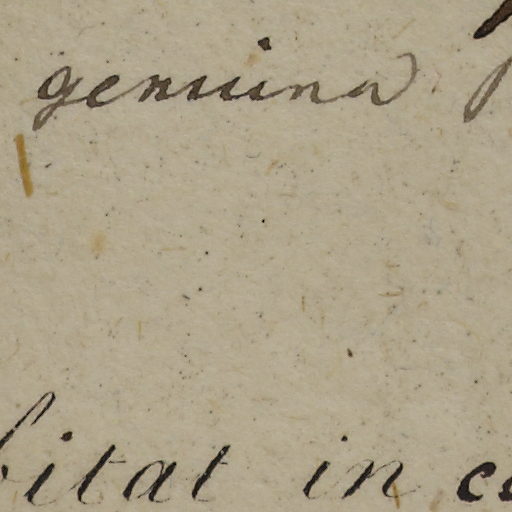 genuina
bitat in